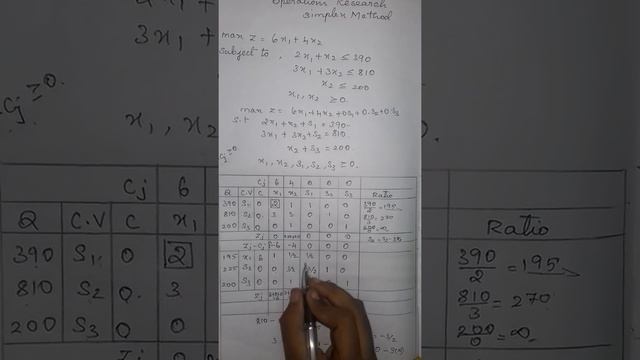 Operations Research
Simplex Method
max z = 6x₁ + 4x₂
Subject to, 2x₁ + x₂ ≤ 390
3x₁ + 3x₂ ≤ 810
x₂ ≤ 200
x₁, x₂ ≥ 0.
max z = 6x₁ + 4x₂ + 0S₁ + 0.S₂ + 0S₃
s.t 2x₁ + x₂ + S₁ = 390
3x₁ + 3x₂ + S₂ = 810
x₂ + S₃ = 200
x₁, x₂, S₁, S₂, S₃ ≥ 0.
Cj 6 4 0 0 0
Q C.V C x₁ x₂ S₁ S₂ S₃ Ratio
390 S₁ 0 2 1 1 0 0 390/2 = 195
810 S₂ 0 3 3 0 1 0 810/3 = 270
200 S₃ 0 0 1 0 0 1 200/0 = ∞
Zj 0 0 0 0
Zj-Cj -6 -4 0 0 0
195 x₁ 6 1 1/2 1/2 0 0
225 S₂ 0 0 3/2 1 0
200 S₃ 0 0 1
Zj
3x₁ +
Cj ≥ 0.
x₁, x
Cj 6
Q C.V C x₁
390 S₁ 0 2
810 S₂ 0. 3
200 S₃ 0 0
390/2 = 195
810/3 = 270
200/0 = ∞